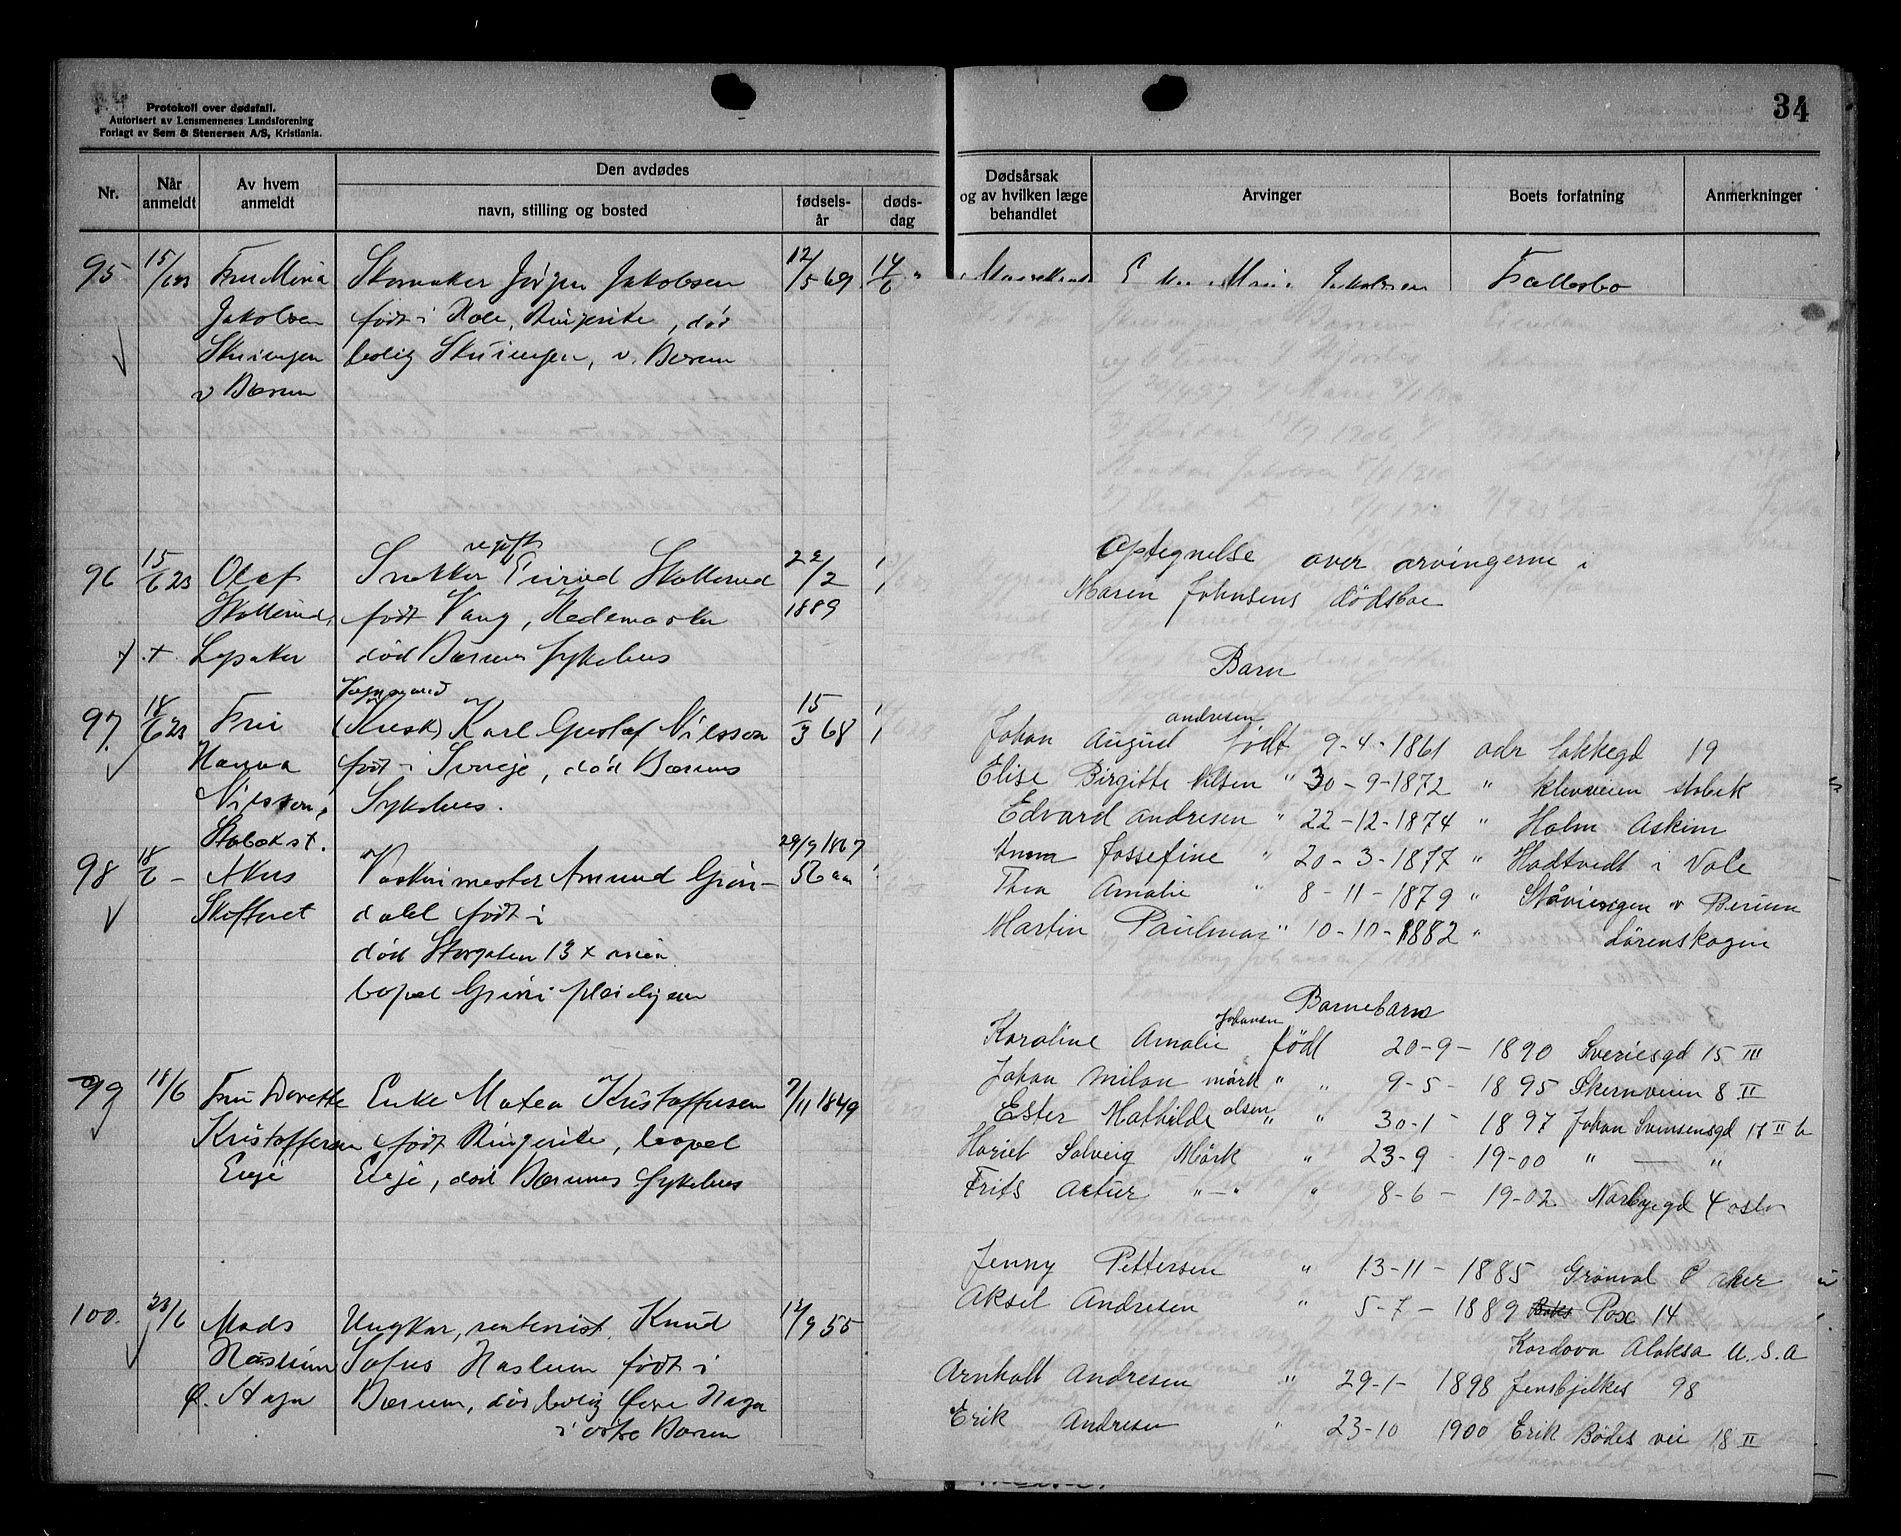 Protokoll over dødsfall.
Autorisert av Lensmennenes Landsforening
Forlagt av Sem & Stenersen A/S, Kristiania.
34
Nr.
Når anmeldt
Av hvem anmeldt
Den avdødes
navn, stilling og bosted
fødsels-år
døds-dag
Dødsårsak og av hvilken læge behandlet
Arvinger
Boets forfatning
Anmerkninger
95 15/6 23 Fru Maria Skomaker Jørgen Jakobsen 12/5 69 14/6
Jakobsen født i Hole, Ringerike, død
bolig v. Bærum
v Bærum
Marie Jakobsen Fællesbo
96 15/6 23 Olaf Snekker Skollerud 22/2
Skollerud, født Vang, Hedemarken 1889
Lysaker død Bærums Sykehus
97. 18/6 23 Fru (Kusk) Karl Gustaf Nilsson 15/3 68
Hanna født i Sverje, død Bærums
Nilsson, Sykehus.
Stabæk st.
98 18/6 – Akers Vaskerimester Amund Grøn- 29/9 1867
Skifteret dahl født i 56 aar
død Storgaten 13
bopel Grini
99 18/6 Fru Dorette Enke Matea Kristoffersen 9/11 1849
Kristoffersen født Ringerike, bopel
Eveje, død Bærums Sykehus
100. 23/6 Mads Ungkar, rentenist, Knud 12/9 55
Haslum Sofus Haslum født i
Ø. Haga Bærum, død bolig Øvre Haga
i østre Bærum
Optegnelse over arvingerne i
Maren Johnsens dødsboe
Barn
andresen
Johan August født 9-4-1861 adr Lakkegd 19
Elise Birgitte Nilsen " 30-9-1872 " klevveien stabek
Edvard andresen " 22-12-1874 " Holm Askim
Anna Jossefine " 20-3-1877 " Hadtvedt i Vale
Thea Amalie " 8-11-1879 " v Berum
Martin Paulmar " 10-10-1882 " Lørenskogen
Barnebarn
Johansen
Karoline Amalie født 20-9-1890 Sveriesgd 15 III
Johan Milan mørk " " 9-5-1895 Skernveien 8 II
Ester Mathilde olsen " " 30-1-1897 Johan Svensensgd 11 II b
Hariet Solveig Mørk " 23-9-19-00 " — "
Frits Artur "-" " 8-6-19-02 Norbygd 4 oslo
Jenny Pettersen " 13-11-1885 Grønvol Ø aker
Aksel Andresen " 5-7-1889 Poxe 14
Kordova Alaksa U.S.A
Arnholt Andresen " 29-1-1898 Jensbjelkes 98
Erik Andresen " 23-10 1900 Erik Bødes vei 18 II